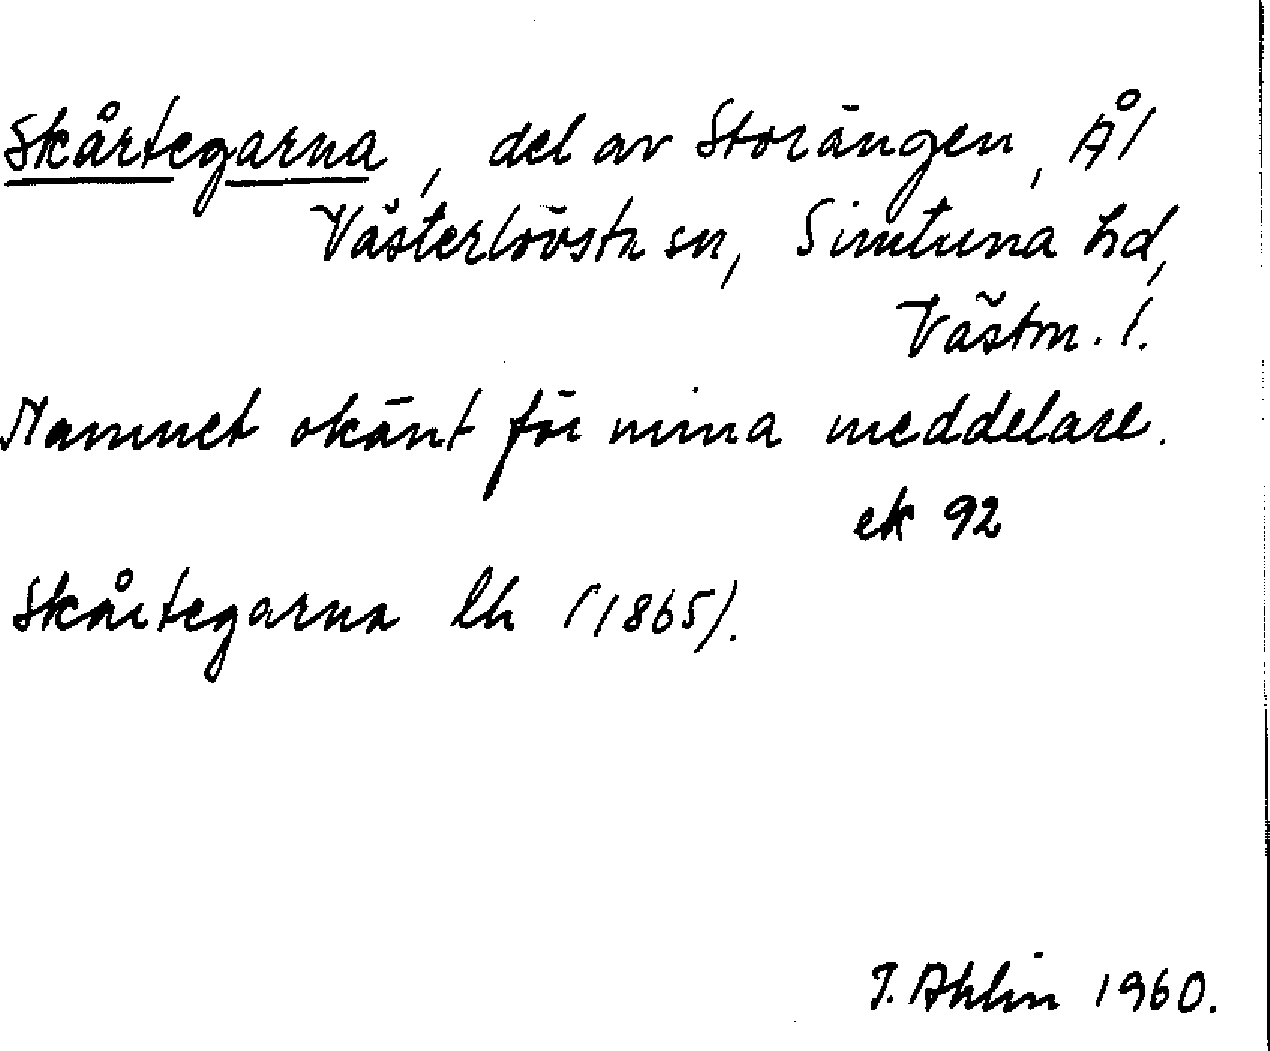 Skårtegarna, del av Storängen, Ål
Västerlövsta sn, Simtuna hd,
Västm. l.
Namnet okänt för mina meddelare.
ek 92
Skårtegarna lh (1865).
T. Ahlin 1960.